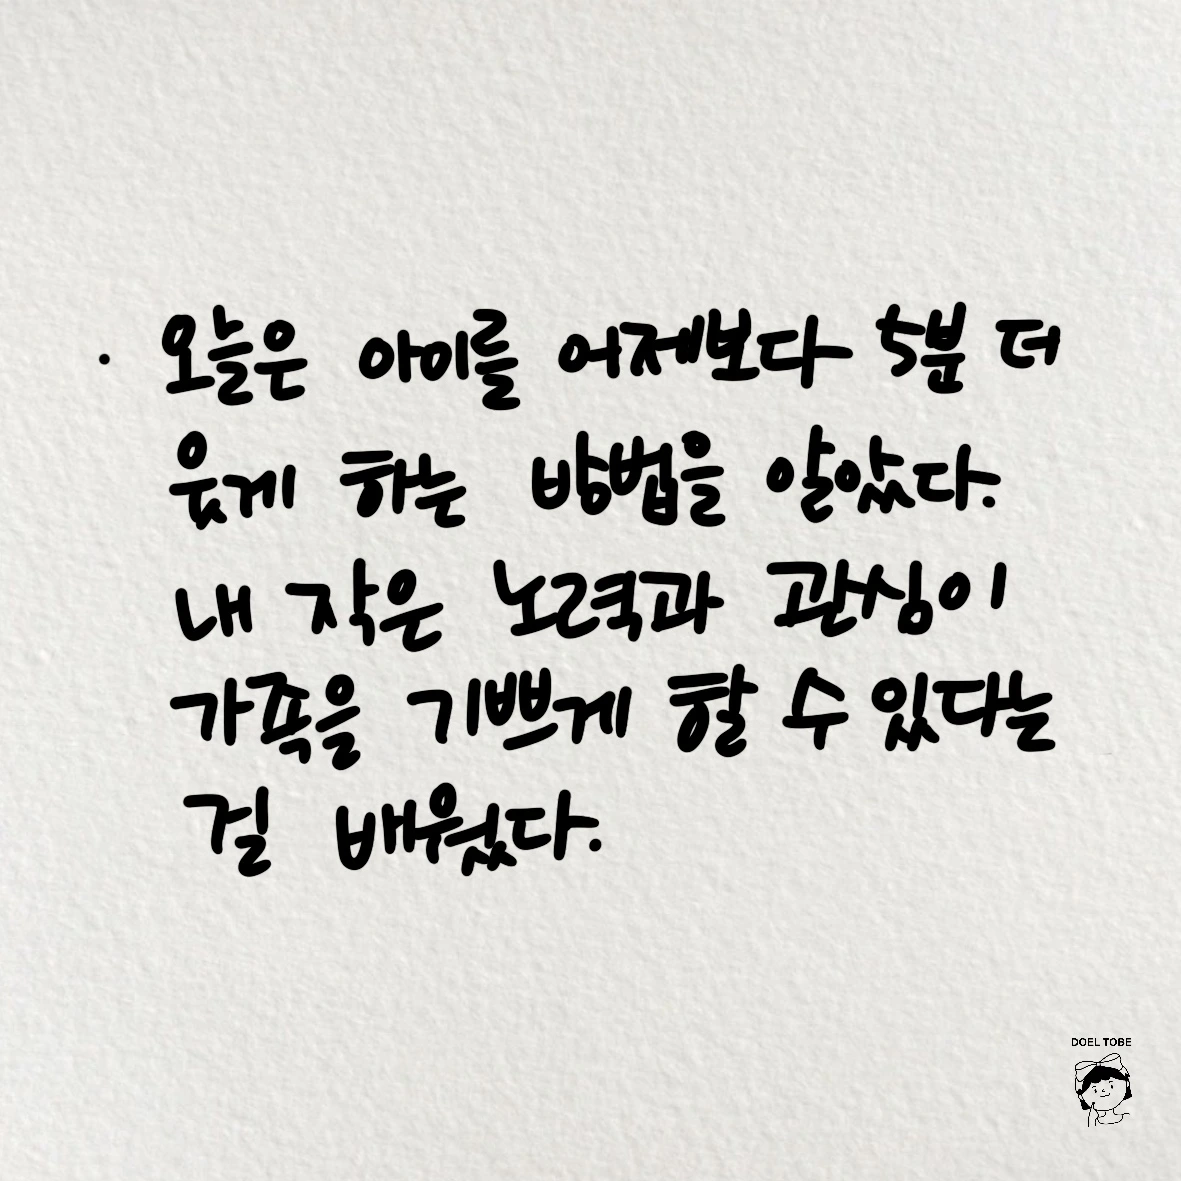 · 오늘은 아이를 어제보다 5분 더
웃게 하는 방법을 알았다.
내 작은 노력과 관심이
가족을 기쁘게 할 수 있다는
걸 배웠다.
DOEL TOBE